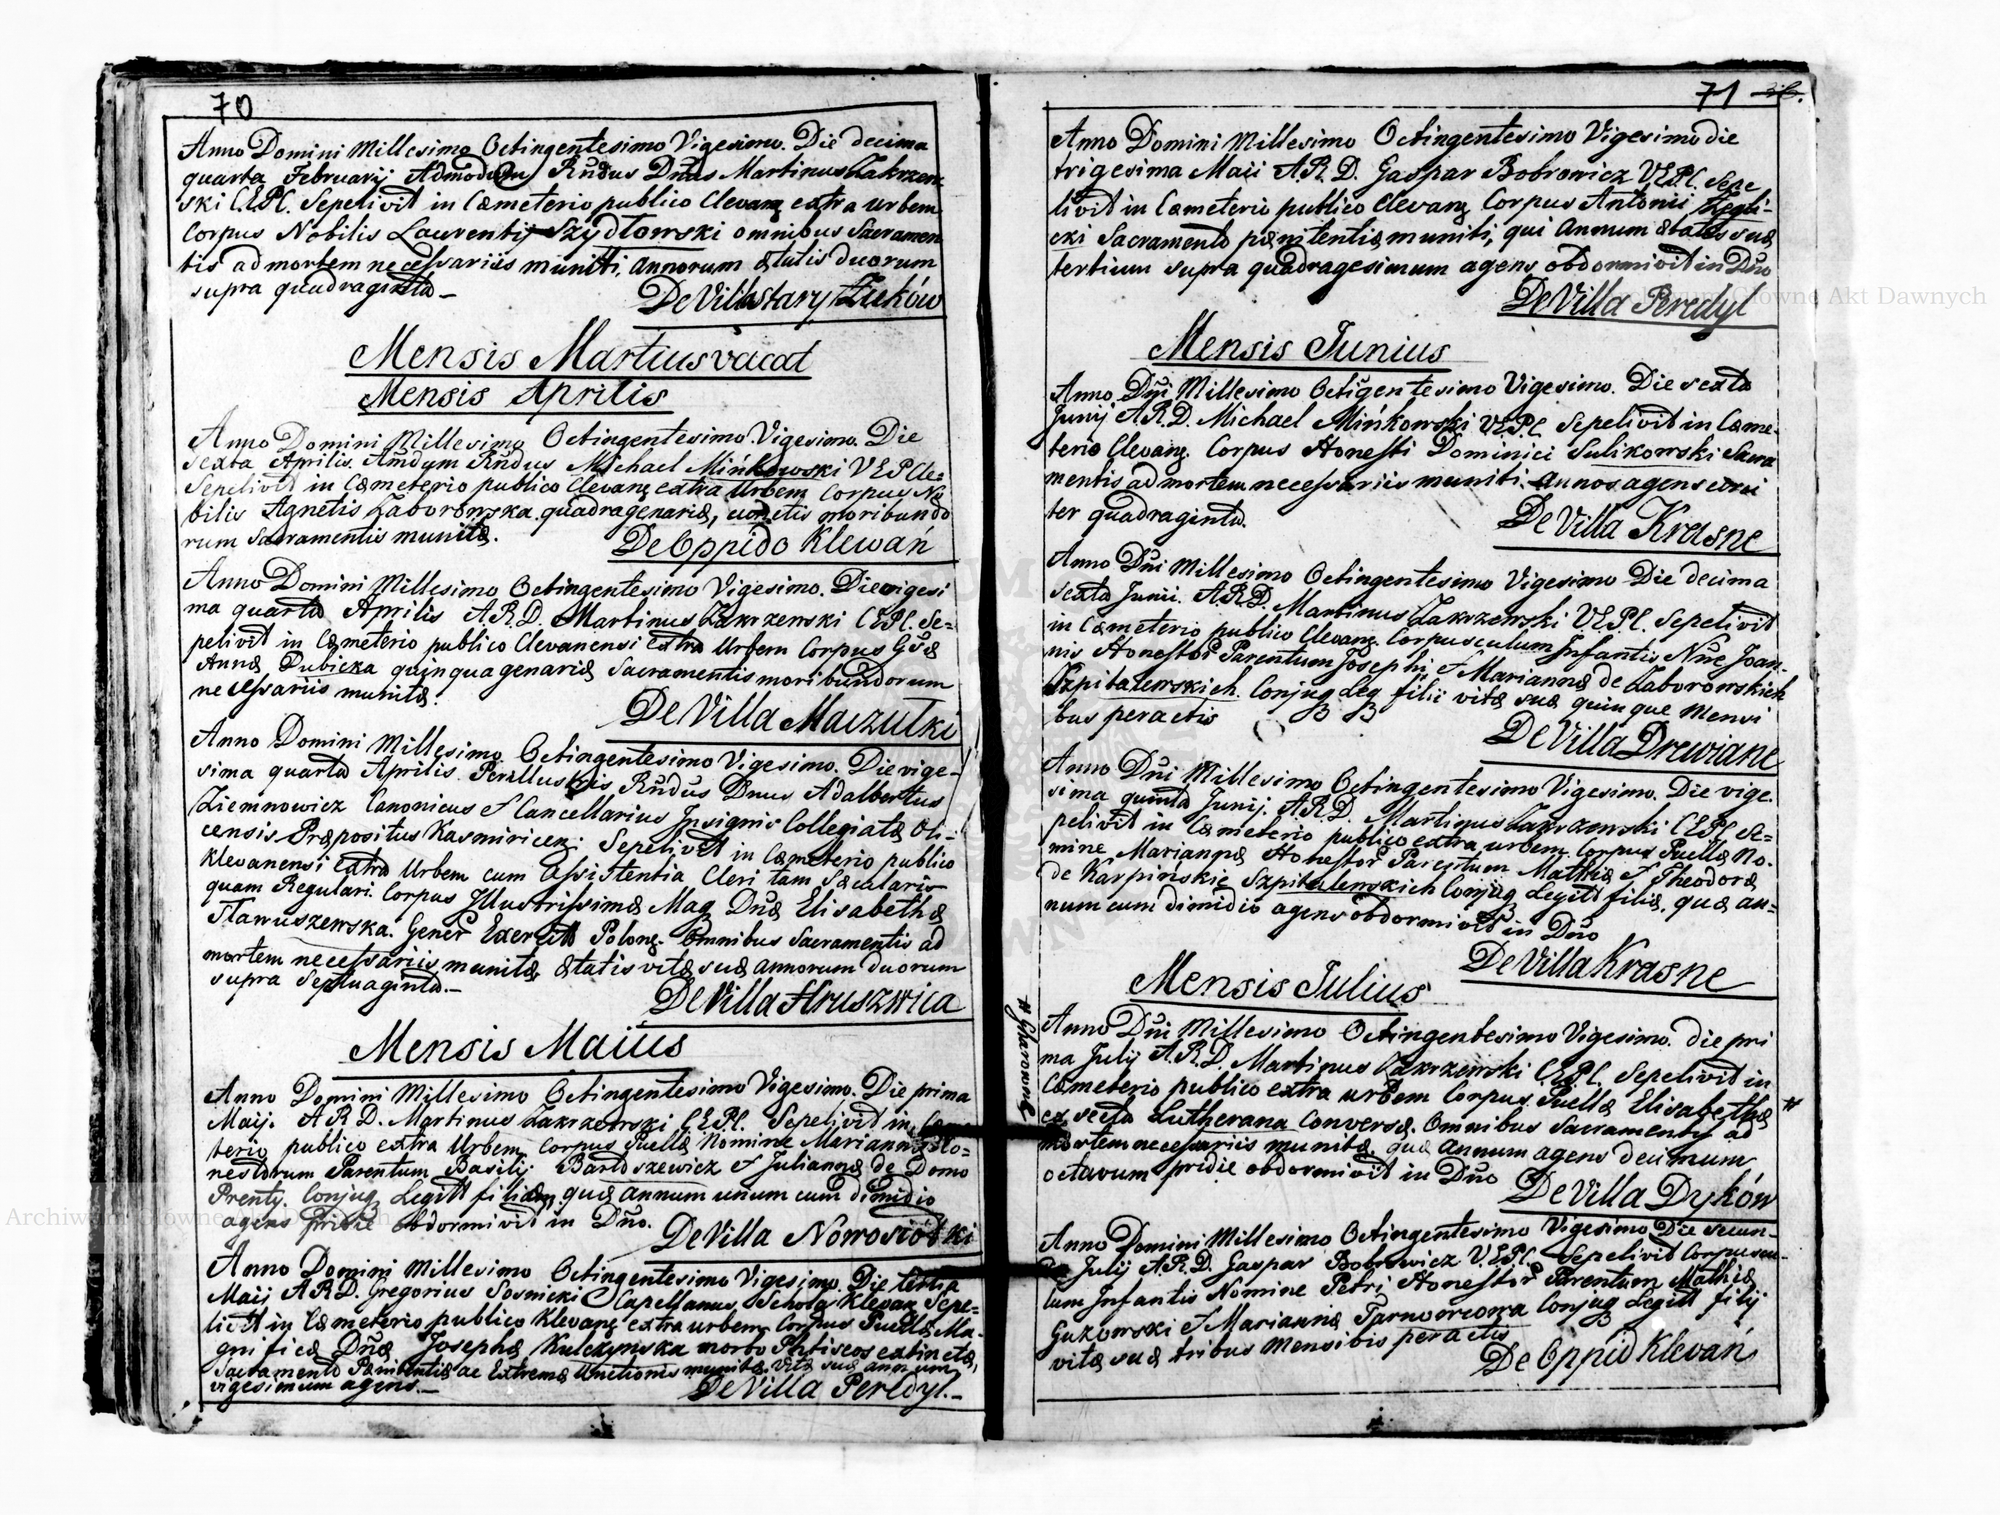 70
Anno Domini Millesimo Octingentesimo Vigesimo. Die decima
quarta Februarij Admodum Rndus Dnus Martinus Zakrzew-
ski C.E.P.C. Sepelivit in Cæmeterio publico Clevanę extra urbem
Corpus Nobilis Laurentij Szydłowski omnibus Sacramen
tis ad mortem necessariis muniti, annorum ætatis duorum
supra quadraginta._
De Villa Stary Zuków
Mensis Martius vacat
Mensis Aprilis
Anno Domini Millesimo Octingentesimo Vigesimo. Die
Sexta Aprilis. Amdum Rndus Michael Mińkowski V.E.P. Cle=
Sepelivit in Cæmeterio publico Clevanę extra Urbem Corpus No
bilis Agnetis Zaborowska quadragenariæ, cunctis moribundo
rum Sacramentis munitæ.
De Oppido Klewań
Anno Domini Millesimo Octingentesimo Vigesimo. Die vigesi
ma quarta Aprilis A.R.D. Martinus Zakrzewski C.E.P.C. Se=
pelivit in Cæmeterio publico Clevanensi extra Urbem Corpus
Annæ Dubicka quinquagenariæ Sacramentis moribundorum
necessariis munitæ.
De Villa Maczulki
Anno Domini Millesimo Octingentesimo Vigesimo. Die vige-
sima quarta Aprilis. Perillustris Rndus Dnus Adalbertus
Ziemnowicz Canonicus et Cancellarius Insignis Collegiatæ Oli-
censis Præpositus Kasmiricen: Sepelivit in Cæmeterio publico
Klevanensi extra Urbem cum Assistentia Cleri tam Sæcularis
quam Regulari. Corpus Illustrissimæ Mag Dnæ Elisabethæ
Gener Exercit Polong. Omnibus Sacramentis ad
mortem necessariis munitæ ætatis vitæ suæ annorum duorum
supra Septuaginta._
De Villa Hruszwica
Mensis Maiius
Anno Domini Millesimo Octingentesimo Vigesimo. Die prima
Maij. A.R.D. Martinus Zakrzewski C.E.P.C. Sepelivit in Cæme
terio publico extra Urbem Corpus Puellæ Nomine Mariannæ Ho=
nestorum Parentum Basilij Bartoszewicz et Juliannæ de Domo
Prenty. Conjug Legitt filiæ quæ annum unum cum dimidio
agens pridie obdormivit in Dno.
De Villa Nowosiołki
Anno Domini Millesimo Octingentesimo Vigesimo. Die tertia
Maij A.R.D. Gregorius Sosnicki Capellanus Schola Klevan Sepe-
livit in Cæmeterio publico Klevanę extra urbem Corpus Puellæ Ma-
gnificæ Dnæ Josephæ Kulczynska morbo Phtiseos extinctæ,
Sacramento Pænitentiæ ac Extremæ Unctionis munitæ. Vitæ suæ annum
vigesimum agens._
De Villa Peredyl._
71
Anno Domini Millesimo Octingentesimo Vigesimo die
trigesima Maii A.R.D. Gaspar Bobrowicz V.E.P.C. Sepe
livit in Cæmeterio publico Clevanę Corpus Antonii
cki Sacramento pænitentiæ muniti, qui Annum ætatis suæ
tertium supra quadragesimum agens obdormivit in Dno
De Villa Peredyl
Mensis Junius
Anno Dni Millesimo Octigentesimo Vigesimo. Die sexta
Junij A.R.D. Michael Mińkowski V.E.P.C. Sepelivit in Cæme-
terio Clevanę. Corpus Honesti Dominici Sulikowski Sacra
mentis ad mortem necessariis muniti. annos agens
ter quadraginta.
De Villa Krasne
Anno Dni Millesimo Octingentesimo Vigesimo Die decima
sexta Junii. A.R.D. Martinus Zakrzewski V.E.P.C. Sepelivit
in Cæmeterio publico Clevanę. Corpusculum Infantis Nne Joan-
nis Honestor Parentum Josephi et Mariannæ de Zaborowskich
Szpitalewskich. Conjug Leg filii vitæ suæ quinque Mensi
bus peractis
De Villa Drewiane
Anno Dni Millesimo Octingentesimo Vigesimo. Die vige.
sima quinta Junij. A.R.D. Martinus Zakrzewski C.E.P.C. Se=
pelivit in Cæmeterio publico extra urbem Corpus Puellæ No.
mine Mariannæ Honestor Parentum Mathiæ et Theodoræ
de Karpińskie Szpitalewskich Conjug Legitt filiæ, quæ an=
num cum dimidio agens obdormivit in Dno
De Villa Krasne
Mensis Julius
Anno Dni Millesimo Octingentesimo Vigesimo. die pri
ma Julij A.R.D Martinus Zakrzewski C.E.P.C. Sepelivit in
Cæmeterio publico extra urbem Corpus Puellæ Elisabethæ #
ex secta Lutherana Conversæ. Omnibus Sacramentis ad
mortem necessariis munitæ, quæ annum agens decimum
octavum pridie obdormivit in Dno
De Villa Dyków
Anno Domini Millesimo Octingentesimo Vigesimo Die secun-
da Julij A.R.D. Gaspar Bobrowicz V.E.P.C. Sepelivit Corpuscu-
lum Infantis Nomine Petri Honestor Parentum Mathiæ
Gukowski et Mariannæ Conjug Legitt filij
vitæ suæ tribus Mensibis peractis
De Oppid Klevań
Archiwum Główne Akt Dawnych
Archiwum Główne Akt Dawnych